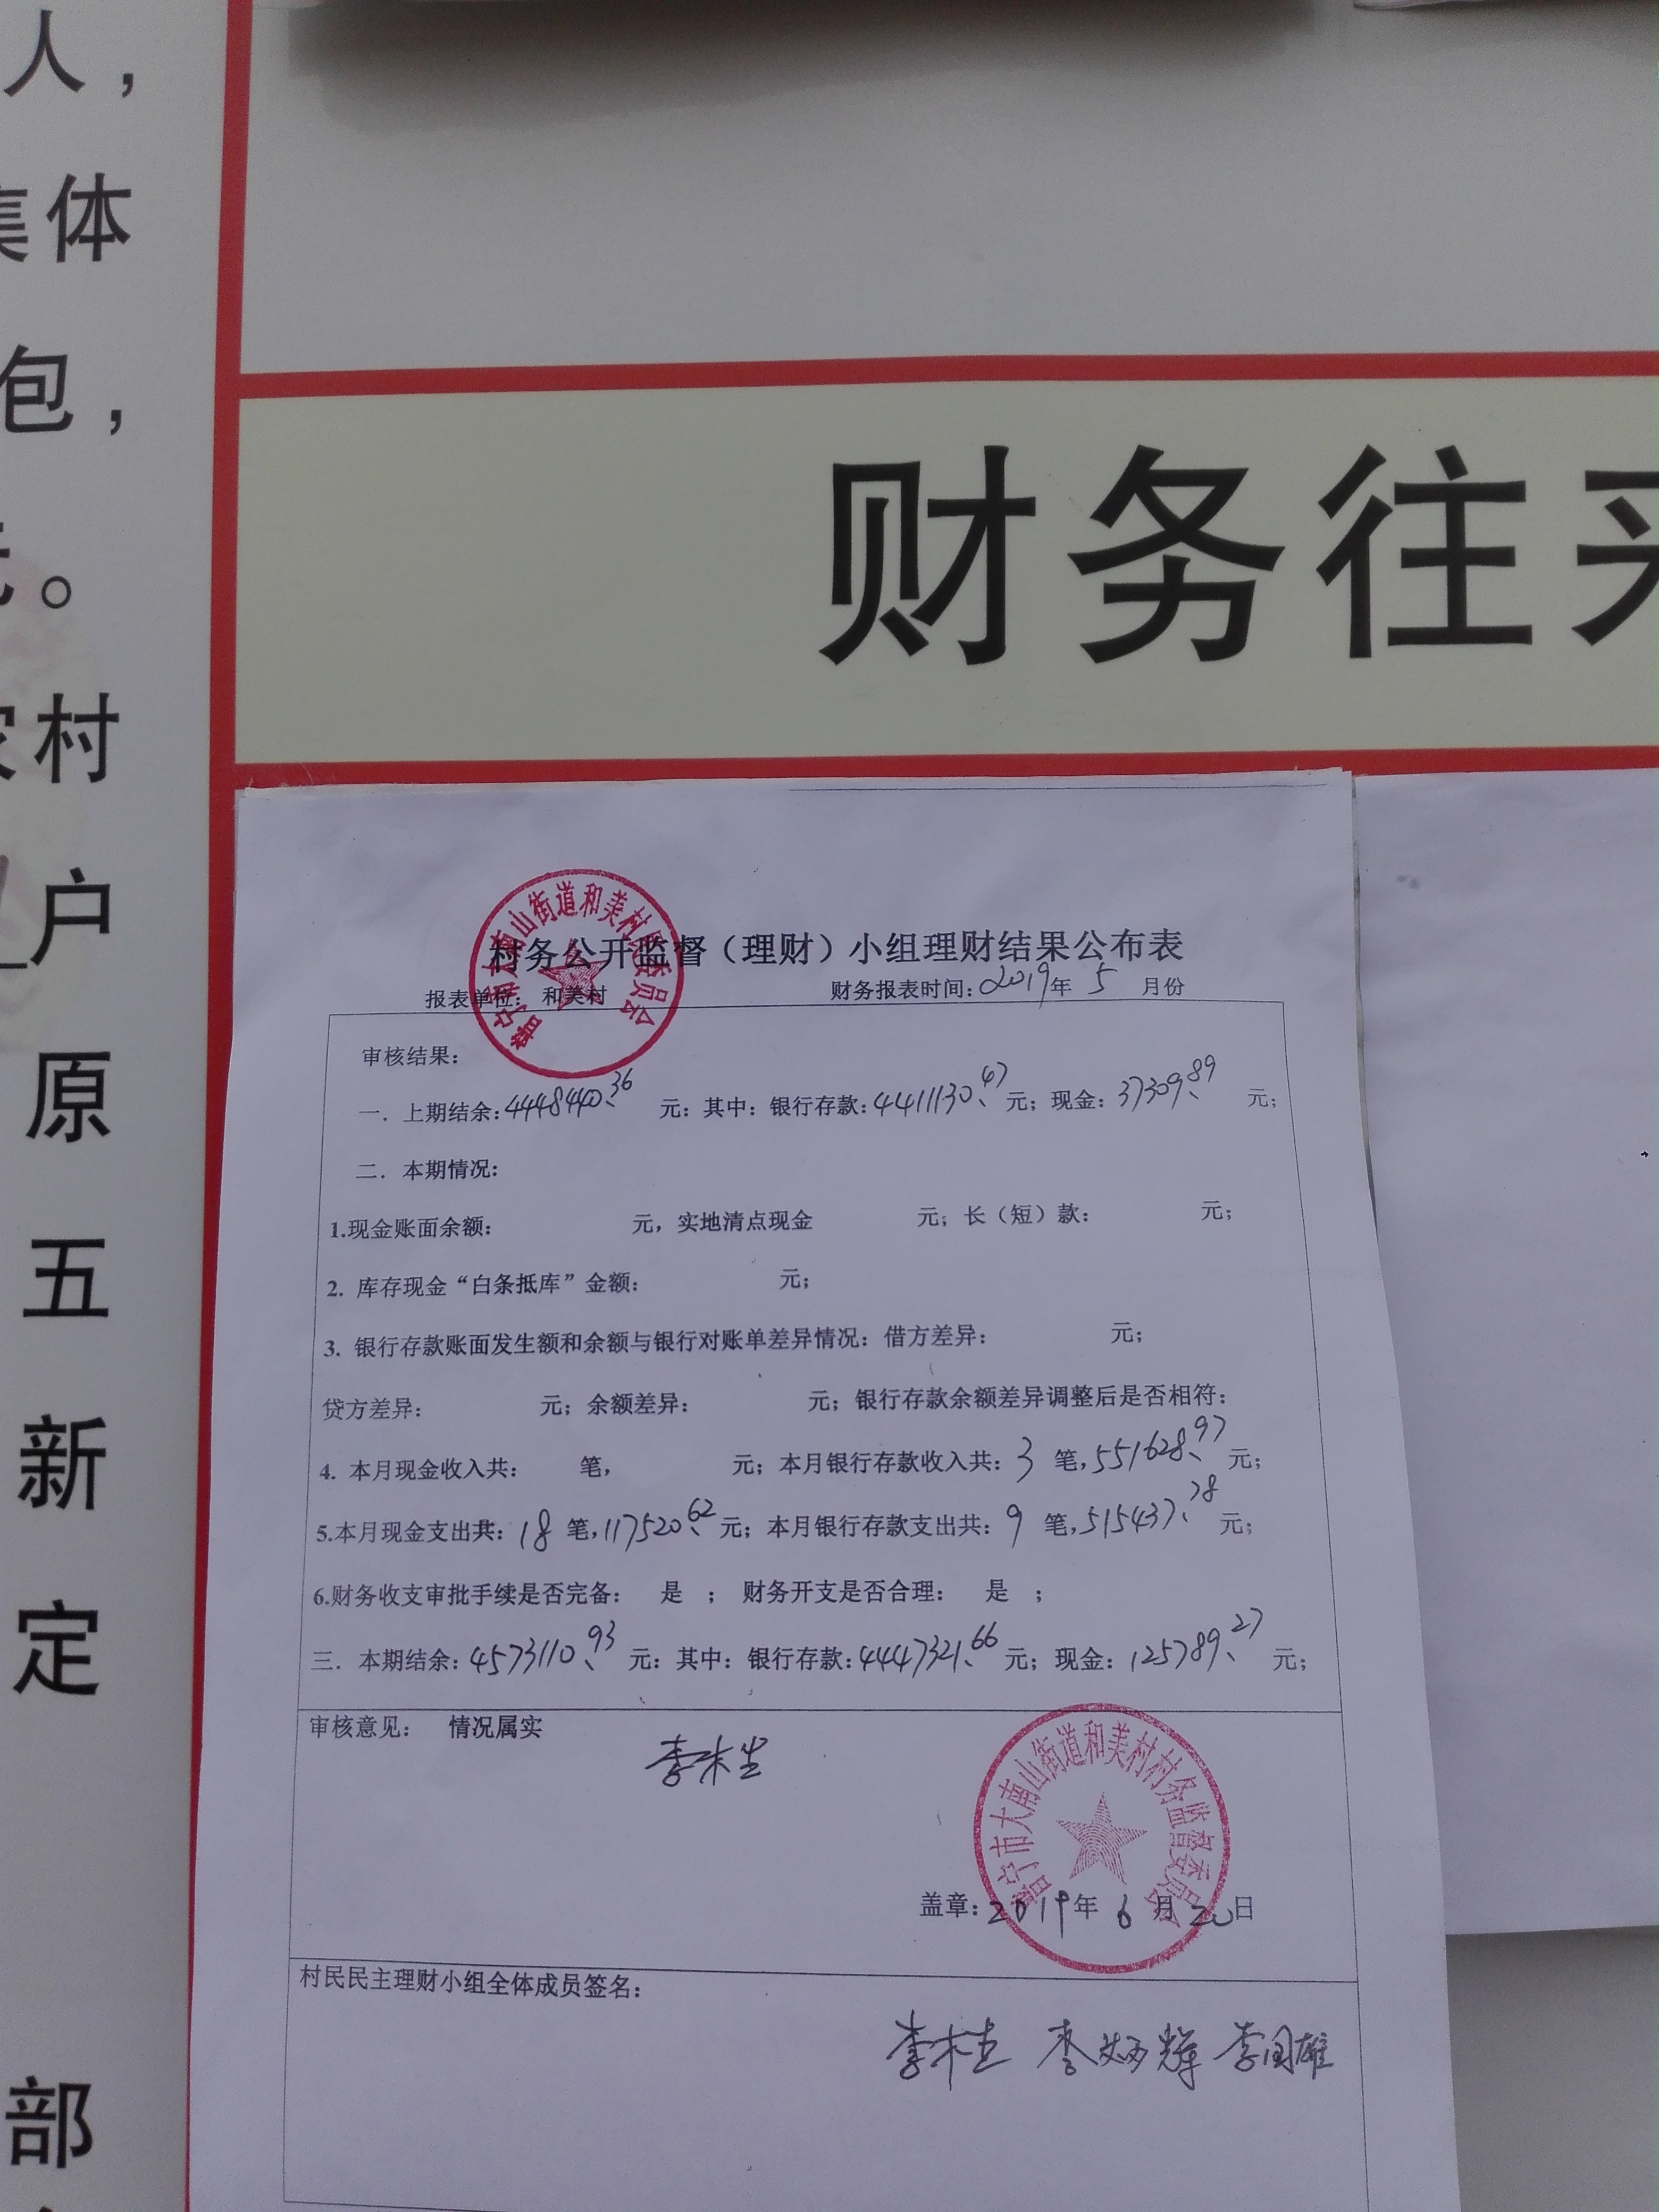 人，
集体
包，
。
村
户
原
五
新
定
部
财务往来
村务公开监督（理财）小组理财结果公布表
报表单位： 和美村 财务报表时间：2019年 5 月份
审核结果：
一．上期结余：4448440.36 元：其中：银行存款：4411130.47元；现金：37309.89 元；
二．本期情况：
1.现金账面余额： 元，实地清点现金 元；长（短）款： 元；
2. 库存现金“白条抵库”金额： 元；
3. 银行存款账面发生额和余额与银行对账单差异情况：借方差异： 元；
贷方差异： 元；余额差异： 元；银行存款余额差异调整后是否相符：
4. 本月现金收入共： 笔， 元；本月银行存款收入共：3 笔，551628.97元；
5.本月现金支出共：18 笔，117520.62元；本月银行存款支出共：9 笔，515437.78元；
6.财务收支审批手续是否完备： 是 ； 财务开支是否合理： 是 ；
三．本期结余：4573110.93 元：其中：银行存款：4447321.66元；现金：125789.27 元；
审核意见： 情况属实
盖章：2019年 6 月 20日
村民民主理财小组全体成员签名：
李炳辉 李国雄
普宁市大南山街道和美村民委员会
普宁市大南山街道和美村村务监督委员会